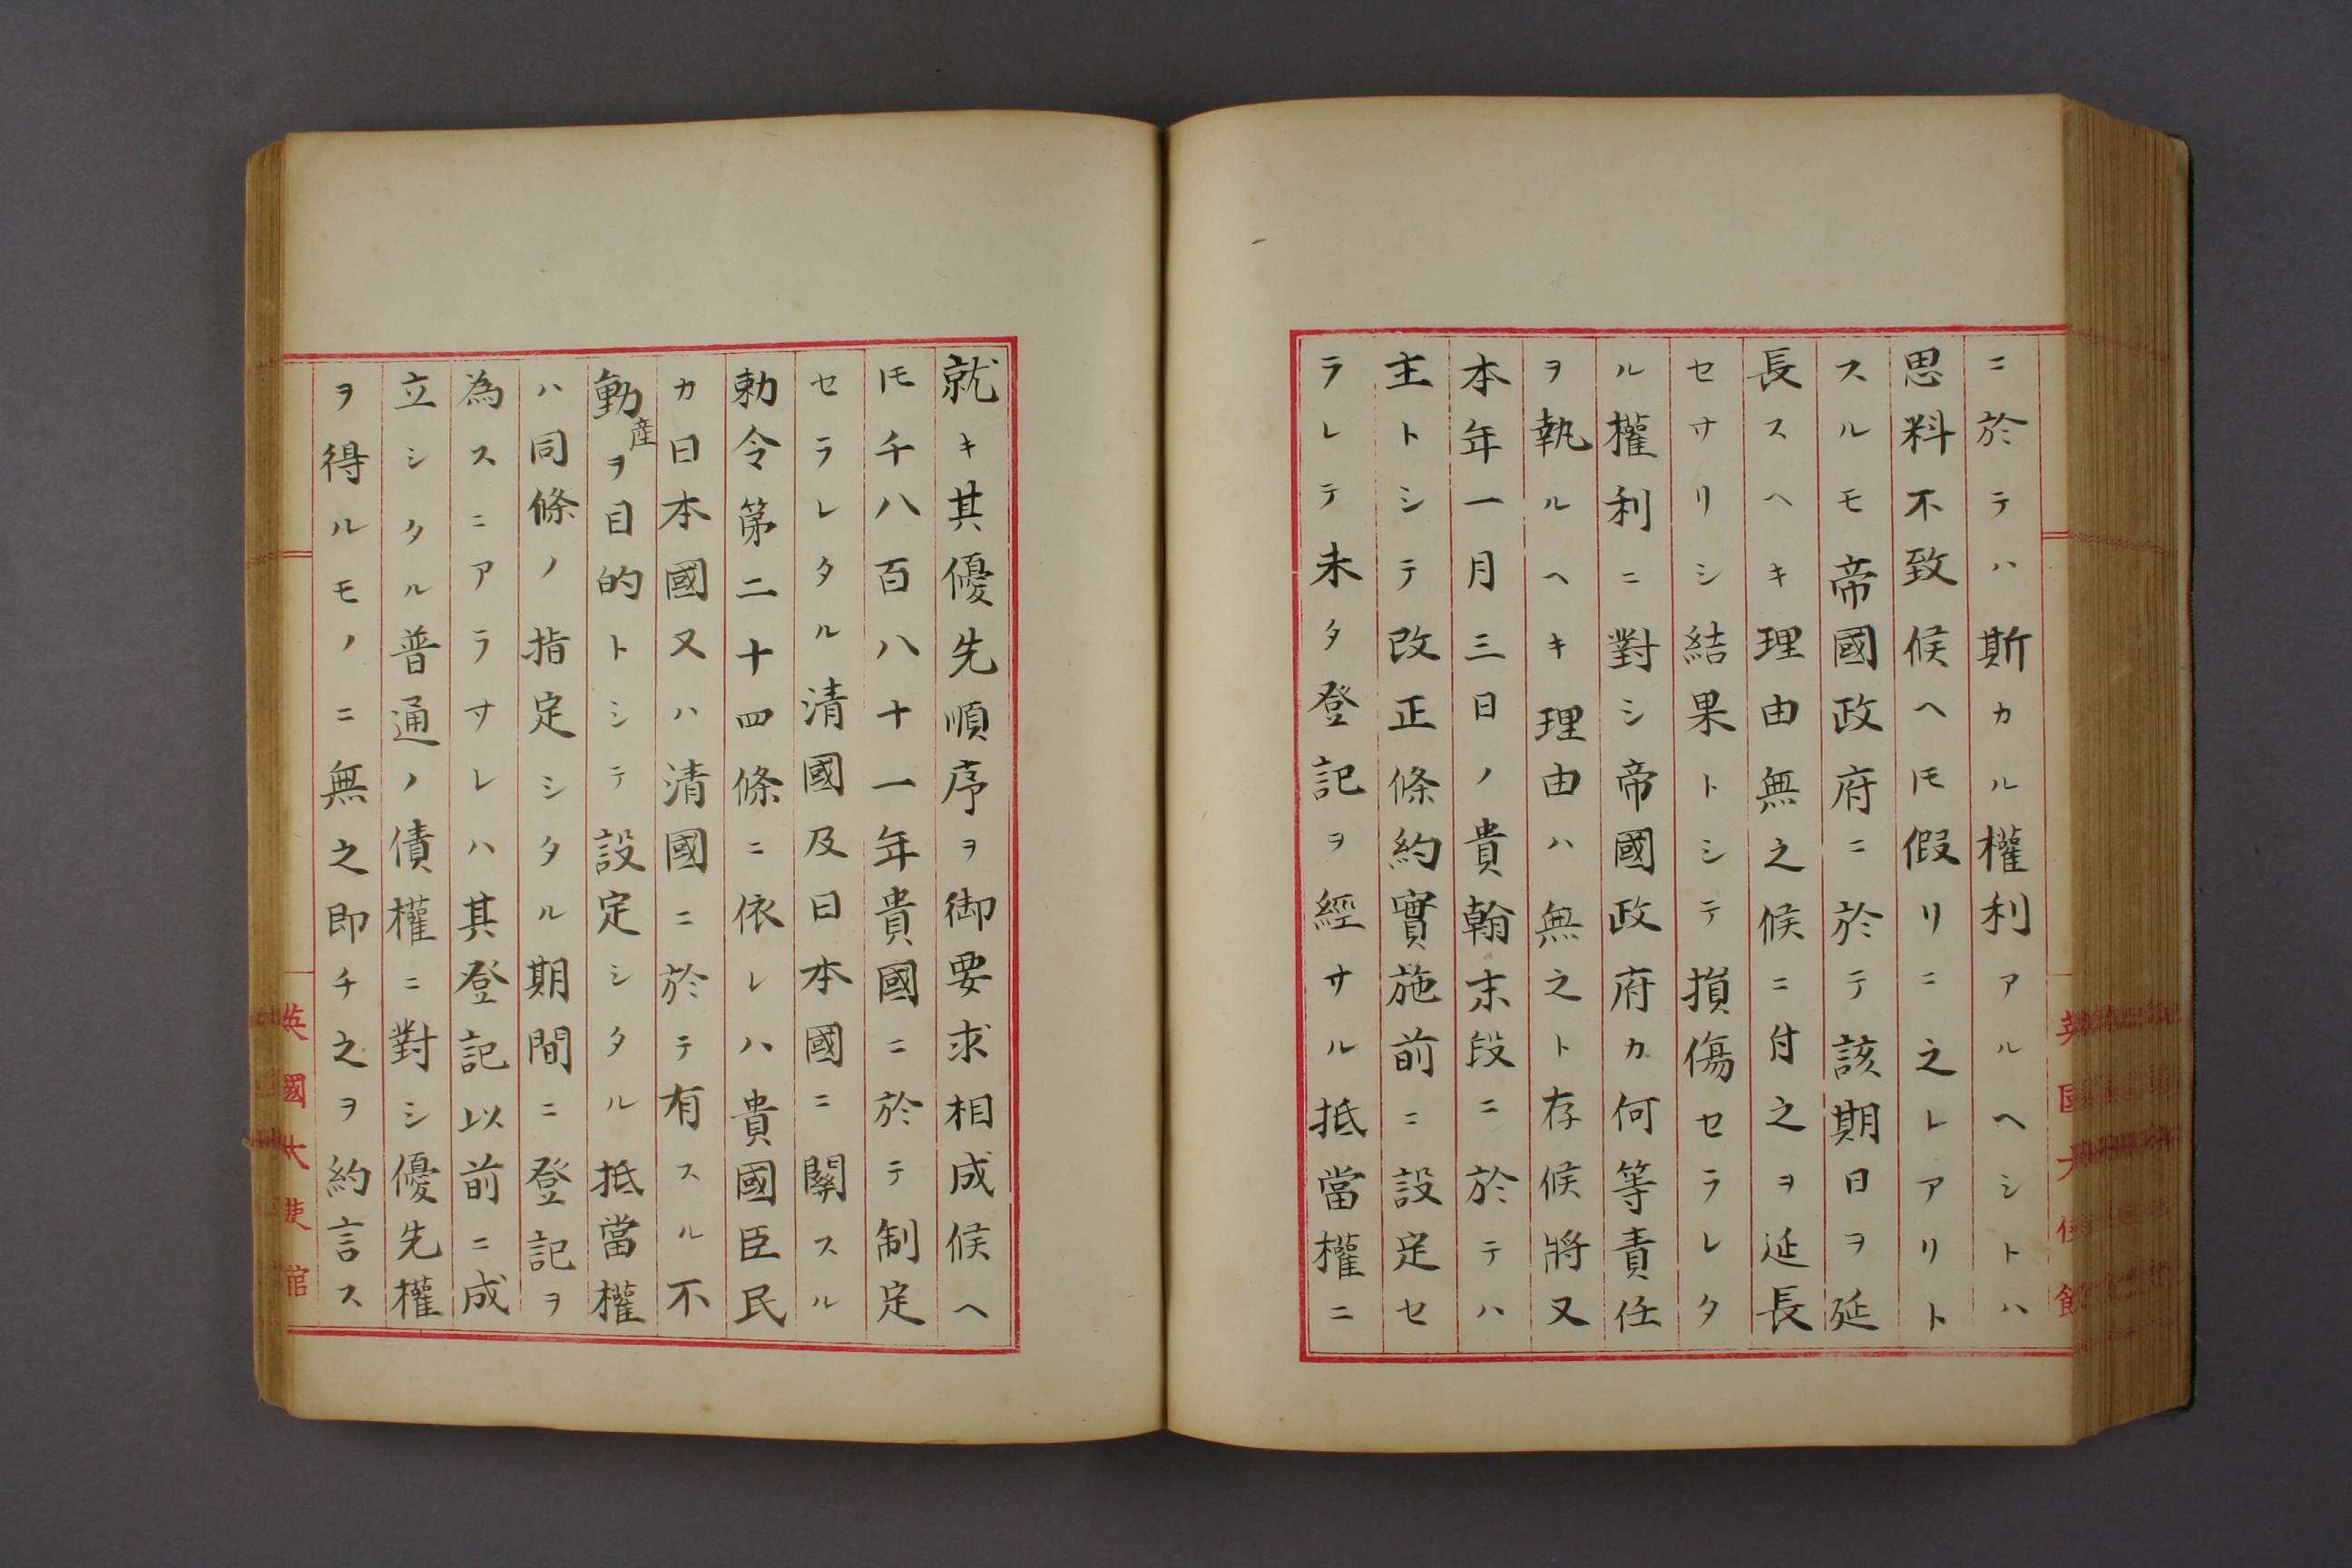 ニ於テハ斯カル權利アルヘシトハ
思料不致候ヘ𪜈假リニ之レアリト
スルモ帝國政府ニ於テ該期日ヲ延
長スヘキ理由無之候ニ付之ヲ延長
セサリシ結果トシテ損傷セラレタ
ル權利ニ對シ帝國政府カ何等責任
ヲ執ルヘキ理由ハ無之ト存候將又
本年一月三日ノ貴翰末段ニ於テハ
主トシテ改正條約實施前ニ設定セ
ラレテ未タ登記ヲ經サル抵當權ニ
英國大使館
就キ其優先順序ヲ御要求相成候ヘ
𪜈千八百八十一年貴國ニ於テ制定
セラレタル清國及日本國ニ關スル
勅令第二十四條ニ依レハ貴國臣民
カ日本國又ハ清國ニ於テ有スル不
動産ヲ目的トシテ設定シタル抵當權
ハ同條ノ指定シタル期間ニ登記ヲ
為スニアラサレハ其登記以前ニ成
立シタル普通ノ債權ニ對シ優先權
ヲ得ルモノニ無之即チ之ヲ約言ス
英國大使館